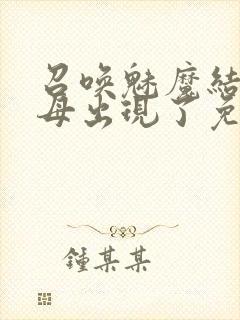 召唤魅魔结
母出现了免
鍾某某